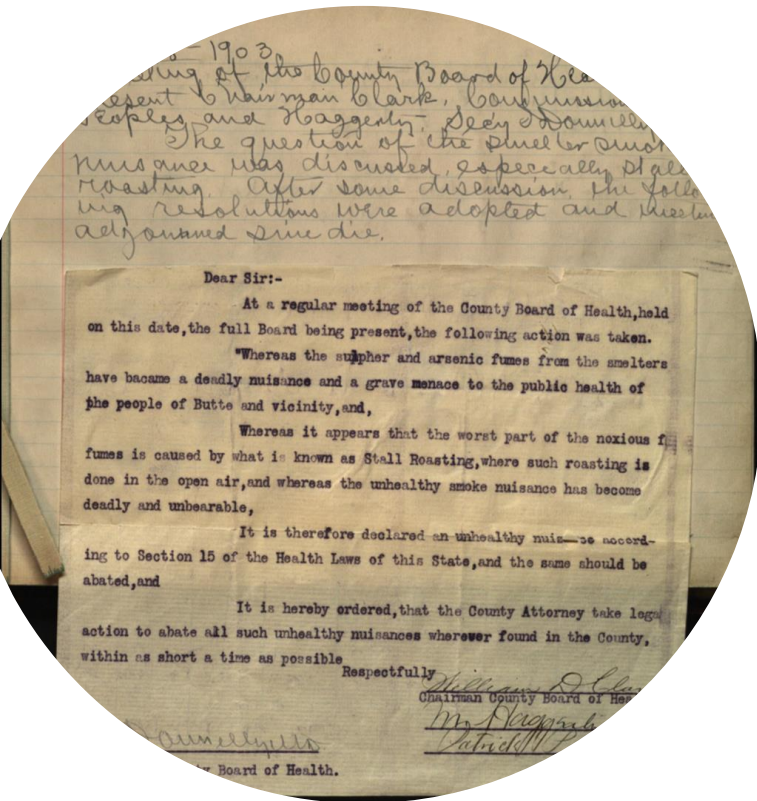 - 1903
of the County Board of
Chairman Clark,
Peoples and Haggerty, Secy Donnelly
The question of the smelter
nuisance was discussed, especially stall
roasting. After some discussion, the follow
ing resolutions were adopted and
adjourned sine die.
Dear Sir:-
At a regular meeting of the County Board of Health,held
on this date,the full Board being present,the following action was taken.
"Whereas the sulpher and arsenic fumes from the smelters
have bacame a deadly nuisance and a grave menace to the public health of
the people of Butte and vicinity,and,
Whereas it appears that the worst part of the noxious f
fumes is caused by what is known as Stall Roasting,where such roasting is
done in the open air,and whereas the unhealthy smoke nuisance has become
deadly and unbearable,
It is therefore declared an unhealthy accord-
ing to Section 15 of the Health Laws of this State,and the same should be
abated,and
It is hereby ordered,that the County Attorney take
action to abate all such unhealthy nuisances wherever found in the County,
within as short a time as possible
Respectfully
William D
Chairman County Board of
Wm Haggerty
Patrick
Donnelly
Board of Health.